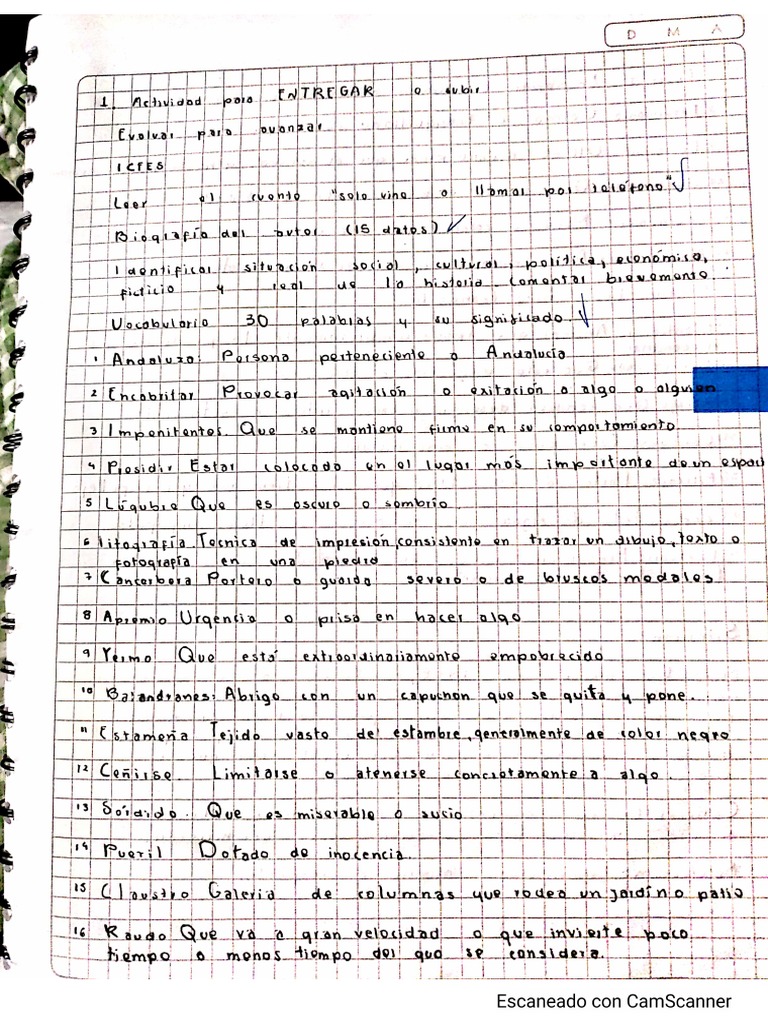 D M A
1. Actividad para ENTREGAR o subir
Evaluar para avanzar
ICFES
Leer el cuento "solo vine a llamar por teléfono"
Biografía del autor (15 datos)
Identificar situación social, cultural, política, económica,
ficticio y real de la historia. Comentar brevemente.
Vocabulario 30 palabras y su significado.
1 Andaluza: Persona perteneciente a Andalucía
2 Encabritar Provocar agitación o exitación a algo o alguien
3 Impenitentes. Que se mantiene firme en su comportamiento
4 Presidir Estar colocado en el lugar más importante de un espaci
5 Lúgubre Que es oscuro o sombrio.
6 litografía. Tecnica de impresión, consistente en trazar un dibujo, texto o
fotografía en una piedra
7 Cancerbera Portero o guarda severo o de bruscos modales
8 Apremio Urgencia o prisa en hacer algo
9 Yermo Que está extraordinariamente empobrecido
10 Balandranes: Abrigo con un capuchon que se quita y pone.
11 Estameña Tejido vasto de estambre, generalmente de color negro
12 Ceñirse. Limitarse o atenerse concretamente a algo
13 Sórdido. Que es miserable o sucio
14 Pueril Dotado de inocencia.
15 Claustro Galeria de columnas que rodea un jardín o patio
16 Raudo Que va a gran velocidad o que invierte poco
tiempo o menos tiempo del que se considera.
Escaneado con CamScanner